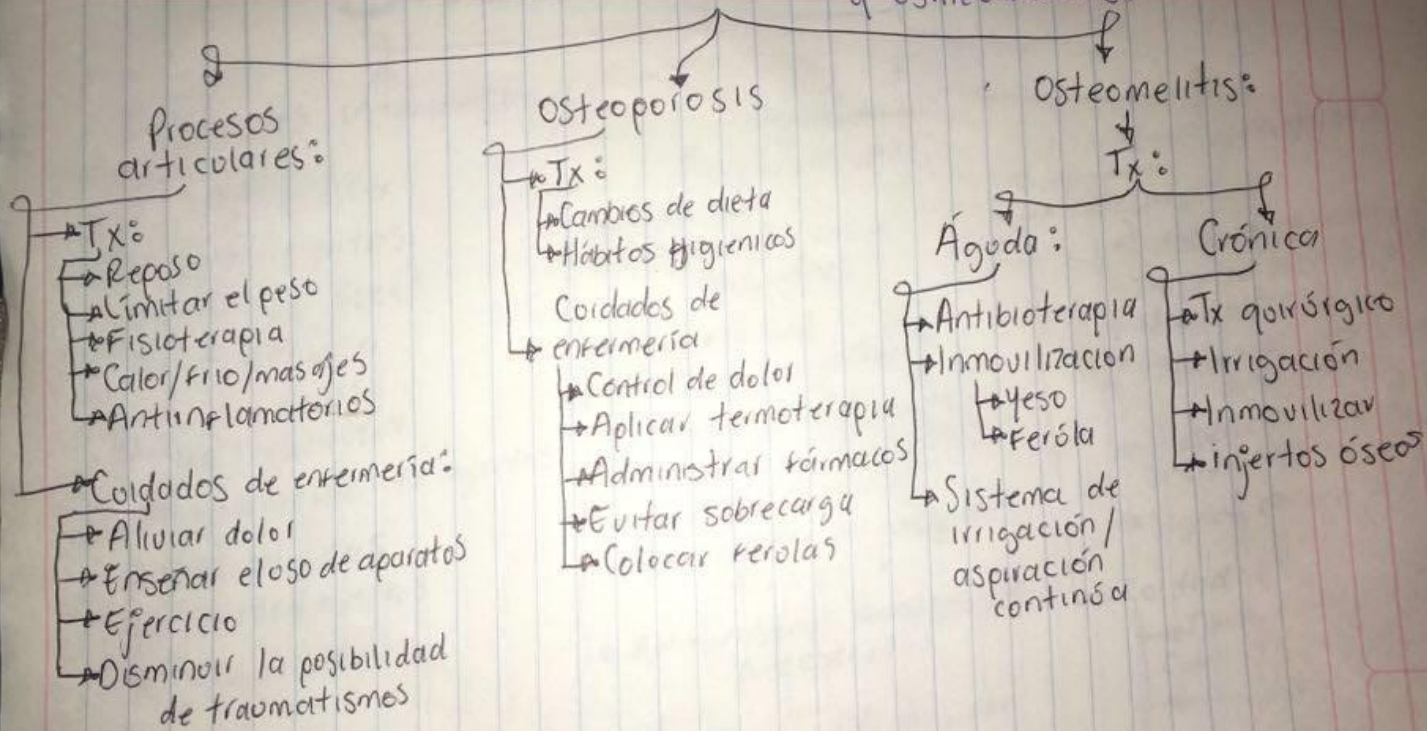 Procesos
articulares:
Tx:
Reposo
Limitar el peso
Fisioterapia
Calor/frio/masajes
Antiinflamatorios
Cuidados de enfermería:
Aliviar dolor
Enseñar el uso de aparatos
Ejercicio
Disminuir la posibilidad
de traumatismos
Osteoporosis
Tx:
Cambios de dieta
Hábitos Higienicos
Cuidados de
enfermería
Control de dolor
Aplicar termoterapia
Administrar fármacos
Evitar sobrecarga
Colocar ferolas
Osteomelitis:
Tx:
Águda:
Antibioterapia
Inmovilizacion
Yeso
Feróla
Sistema de
irrigación/
aspiración
continúa
Crónica
Tx quirúrgico
Irrigación
Inmovilizar
injertos óseos